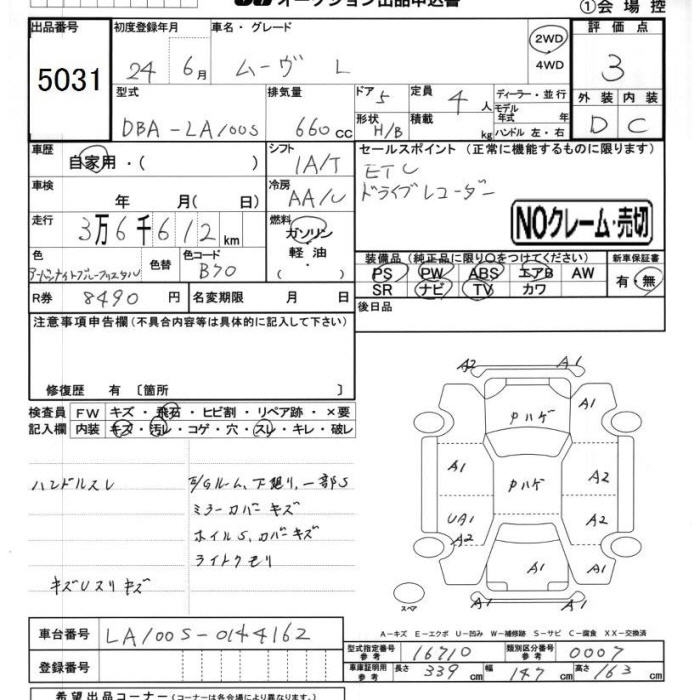 オークション出品申込書
①会場控
出品番号
5031
初度登録年月
24年 6月
車名・グレード
ムーヴ L
2WD
4WD
評価点
3
外装 内装
D C
型式
DBA-LA100S
排気量
660cc
ドア 5
形状 H/B
定員 4人
積載 kg
ディーラー・並行
モデル年式 年
ハンドル 左・右
車歴
自家用・( )
シフト
IA/T
セールスポイント (正常に機能するものに限ります)
ETC
ドライブレコーダー
車検
年 月( 日)
冷房
AA/C
NOクレーム・売切
走行
3万6千612km
燃料
ガソリン
軽油
( )
色
色替
色コード
B70
装備品(純正品に限り○をつけてください)
PS PW ABS エアB AW
SR ナビ TV カワ
新車保証書
有・無
R券 8490円
名変期限 月 日
後日品
注意事項申告欄(不具合内容等は具体的に記入して下さい)
修復歴 有 〔箇所 〕
検査員記入欄
FW キズ・飛石・ヒビ割・リペア跡・×要
内装 キズ・汚レ・コゲ・穴・スレ・キレ・破レ
ハンドルスレ
E/Gルーム、下廻り、一部S
ミラーカバーキズ
ホイルS、カバーキズ
ライトクモリ
キズUスリキズ
A2 A1
A1
中ハゲ
A1 中ハゲ A2
UA1 A2
A2
A1 A1
A1 A1
スペア
A-キズ E-エクボ U-凹み W-補修跡 S-サビ C-腐食 XX-交換済
車台番号
LA100S-0144162
登録番号
型式指定番号 参考 16710
類別区分番号 参考 0007
車庫証明用 参考 長さ 339cm 幅 147cm 高さ 163cm
希望出品コーナー(コーナーは各会場により異なります)